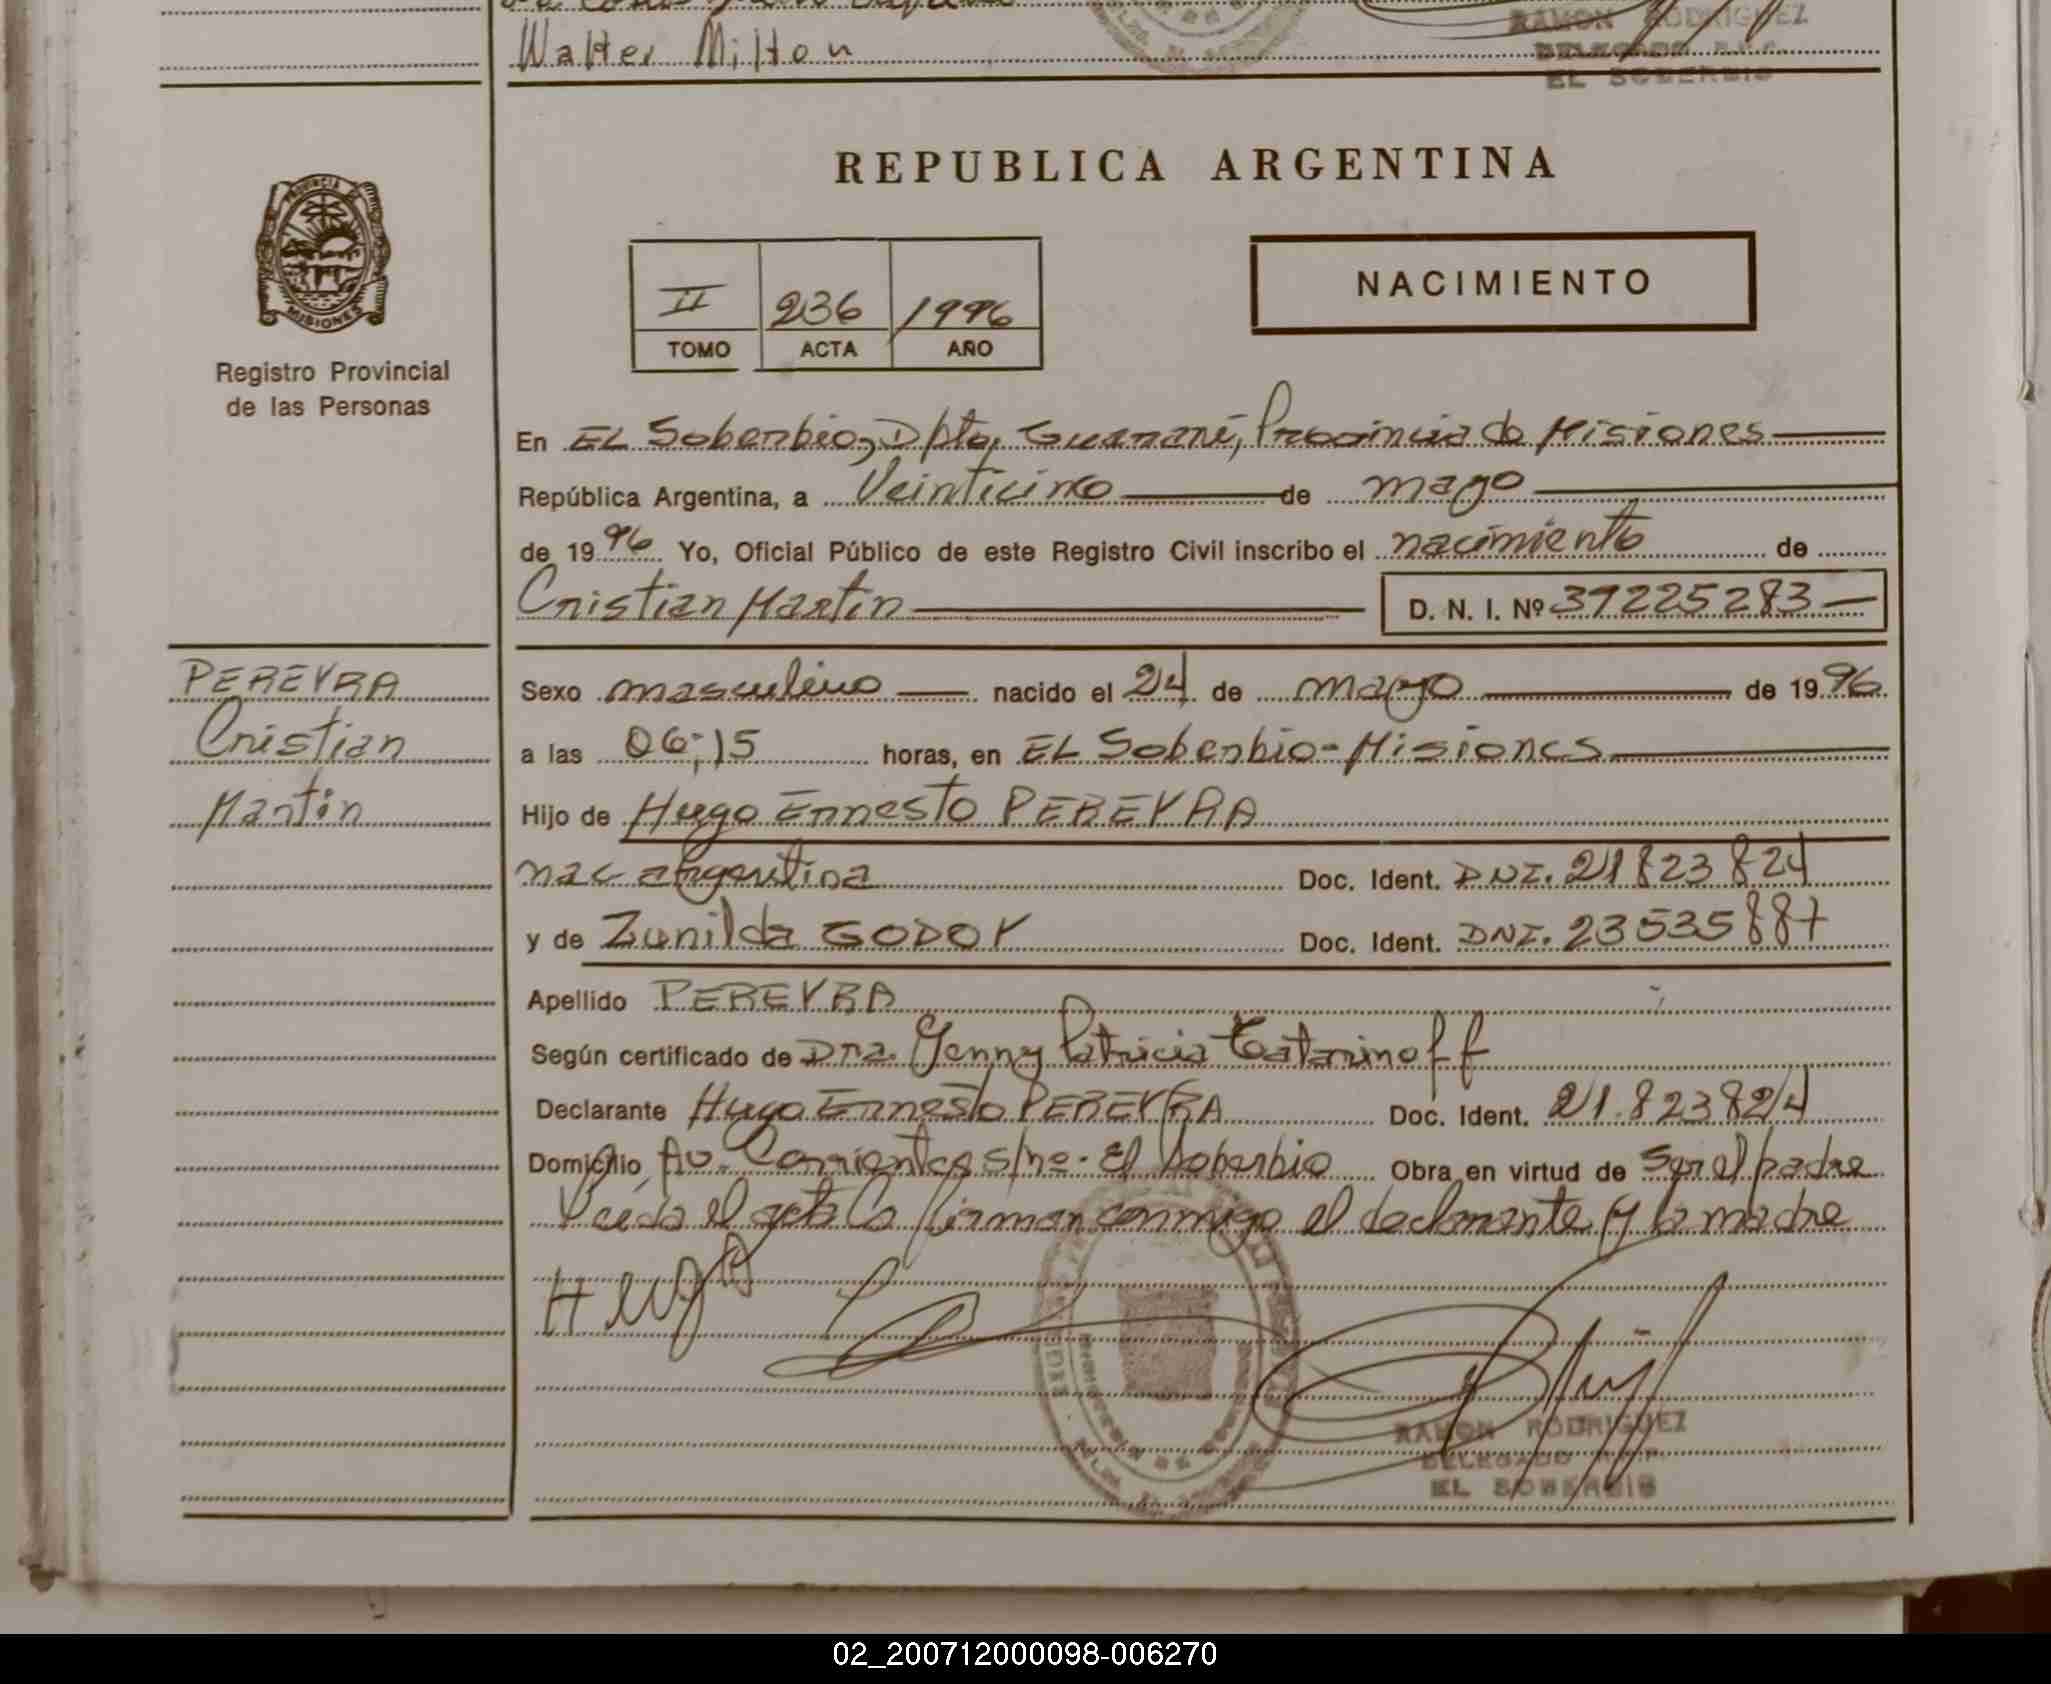 Walter Milton
RAMON RODRIGUEZ
DELEGADO R.P.P.
EL SOBERBIO
PROVINCIA DE
MISIONES
Registro Provincial
de las Personas
REPUBLICA ARGENTINA
II 236 1996
TOMO ACTA AÑO
NACIMIENTO
En EL Soberbio, Dpto, Guaraní, Provincia de Misiones
República Argentina, a Veinticinco de mayo
de 1996 Yo, Oficial Público de este Registro Civil inscribo el nacimiento de
Cristian Martin D. N. I. Nº 39225283
PEREYRA
Cristian
Martin
Sexo masculino nacido el 24 de mayo de 1996
a las 06;15 horas, en EL Soberbio-Misiones
Hijo de Hugo Ernesto PEREYRA
nac argentina Doc. Ident. DNI. 21823824
y de Zunilda GODOY Doc. Ident. DNI. 23535887
Apellido PEREYRA
Según certificado de Dra. Yenny Patricia Tatarinoff
Declarante Hugo Ernesto PEREYRA Doc. Ident. 21.823824
Domicilio Av. Corrientes s/nº- El Soberbio Obra en virtud de ser el padre
Leída el acta la firman conmigo el declarante y la madre
RAMON RODRIGUEZ
DELEGADO R.P.P.
EL SOBERBIO
02_200712000098-006270